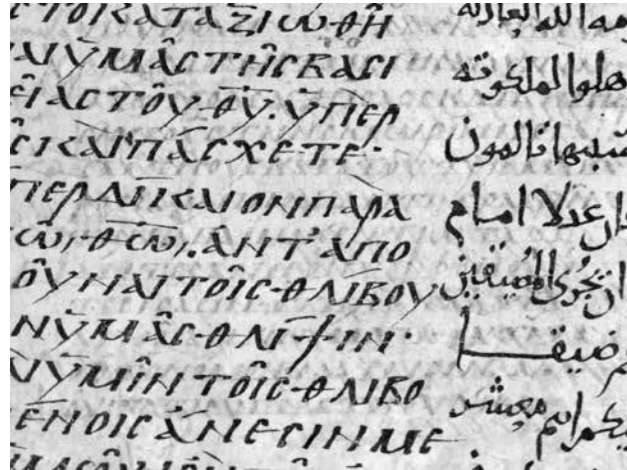 CΤΟΚΑΤΑΞΙΩΘΗ
ΑΙΥΜΑCΤΗCΒΑCΙ
ΕΙΑCΤΟΥΘΥ·ΥΠΕΡ
CΚΑΙΠΑCΧΕΤΕ·
ΠΕΡΔΙΚΑΙΟΝΠΑΡΑ
ΤΩΘΩ·ΑΝΤΑΠΟ
ΟΥΝΑΙΤΟΙCΘΛΙΒΟΥ
ΝΥΜΑCΘΛΙΨΙΝ·
ΑΙΥΜΙΝΤΟΙCΘΛΙΒΟ
ΕΝΟΙCΑΝΕCΙΝΜΕ
الله العادله
هلوا لملكوته
بسببها تالمون
ان عدلا امام
ان يجزى المضيقين
ضيقا
معشر